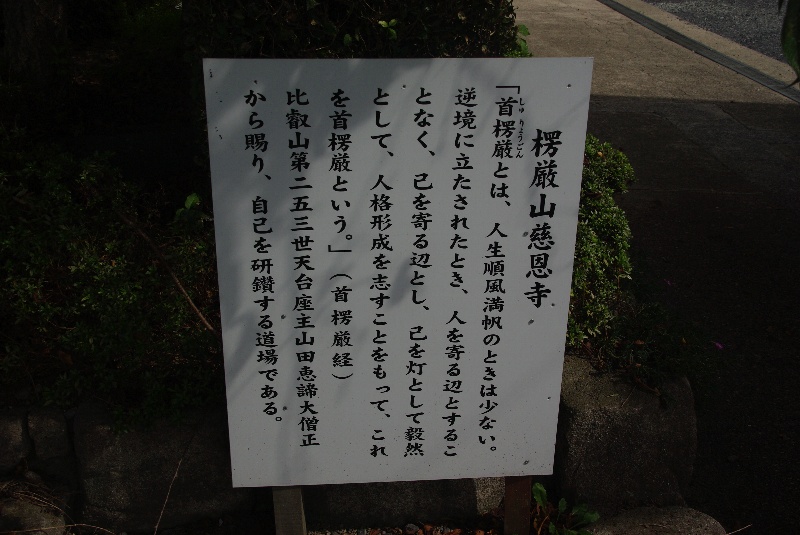 楞厳山慈恩寺
「首楞厳とは、人生順風満帆のときは少ない。
しゅりょうごん
逆境に立たされたとき、人を寄る辺とするこ
となく、己を寄る辺とし、己を灯として毅然
として、人格形成を志すことをもって、これ
を首楞厳という。」(首楞厳経)
比叡山第二五三世天台座主山田恵諦大僧正
から賜り、自己を研鑽する道場である。